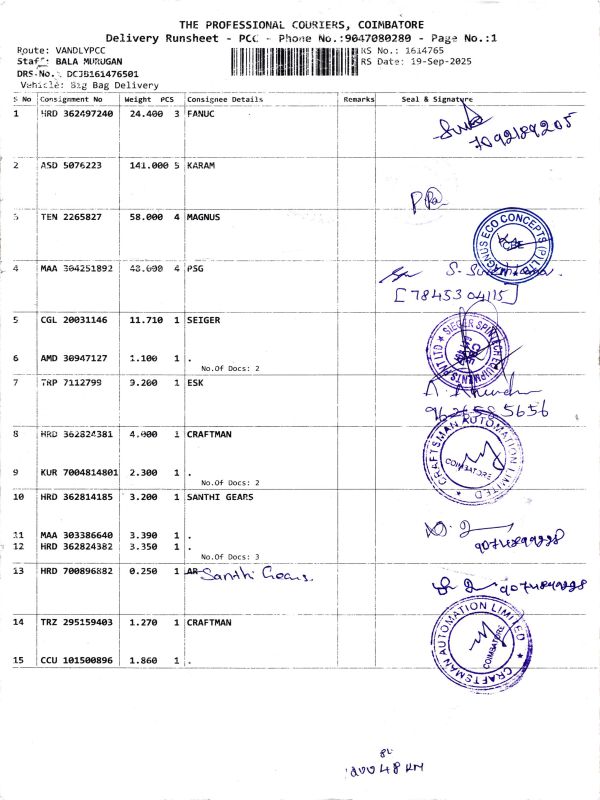 THE PROFESSIONAL COURIERS, COIMBATORE
Delivery Runsheet - PCC - Phone No.:9047080280 - Page No.:1
Route: VANDLYPCC RS No.: 1614765
Staff: BALA MURUGAN RS Date: 19-Sep-2025
DRS-No.: DCJB161476501
Vehicle: Big Bag Delivery
S No Consignment No Weight PCS Consignee Details Remarks Seal & Signature
1 HRD 362497240 24.400 3 FANUC
7092189205
2 ASD 5076223 141.000 5 KARAM
3 TEN 2265827 58.000 4 MAGNUS
MAGNUS ECO CONCEPTS (P) LTD
CBE
4 MAA 304251892 48.000 4 PSG
[7845304115]
5 CGL 20031146 11.710 1 SEIGER
SIEGER SPINTECH EQUIPMENTS PVT LTD
6 AMD 30947127 1.100 1 .
No.Of Docs: 2
7 TRP 7112799 9.200 1 ESK
9626585656
8 HRD 362824381 4.000 1 CRAFTMAN
CRAFTSMAN AUTOMATION LIMITED
COIMBATORE
9 KUR 7004814801 2.300 1 .
No.Of Docs: 2
10 HRD 362814185 3.200 1 SANTHI GEARS
11 MAA 303386640 3.390 1 .
12 HRD 362824382 3.350 1 .
No.Of Docs: 3
13 HRD 700896882 0.250 1 AR Santhi Gears.
14 TRZ 295159403 1.270 1 CRAFTMAN
CRAFTSMAN AUTOMATION LIMITED
COIMBATORE
15 CCU 101500896 1.860 1 .